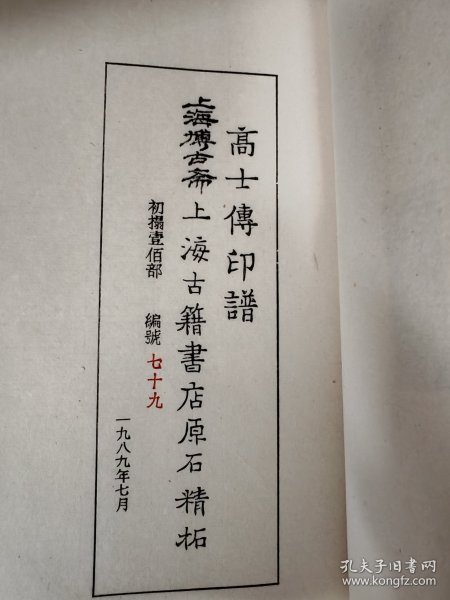 高士傳印譜
上海博古斋
上海古籍書店原石精拓
初搨壹佰部 編號 七十九
一九八九年七月
孔夫子旧书网
www.kongfz.com